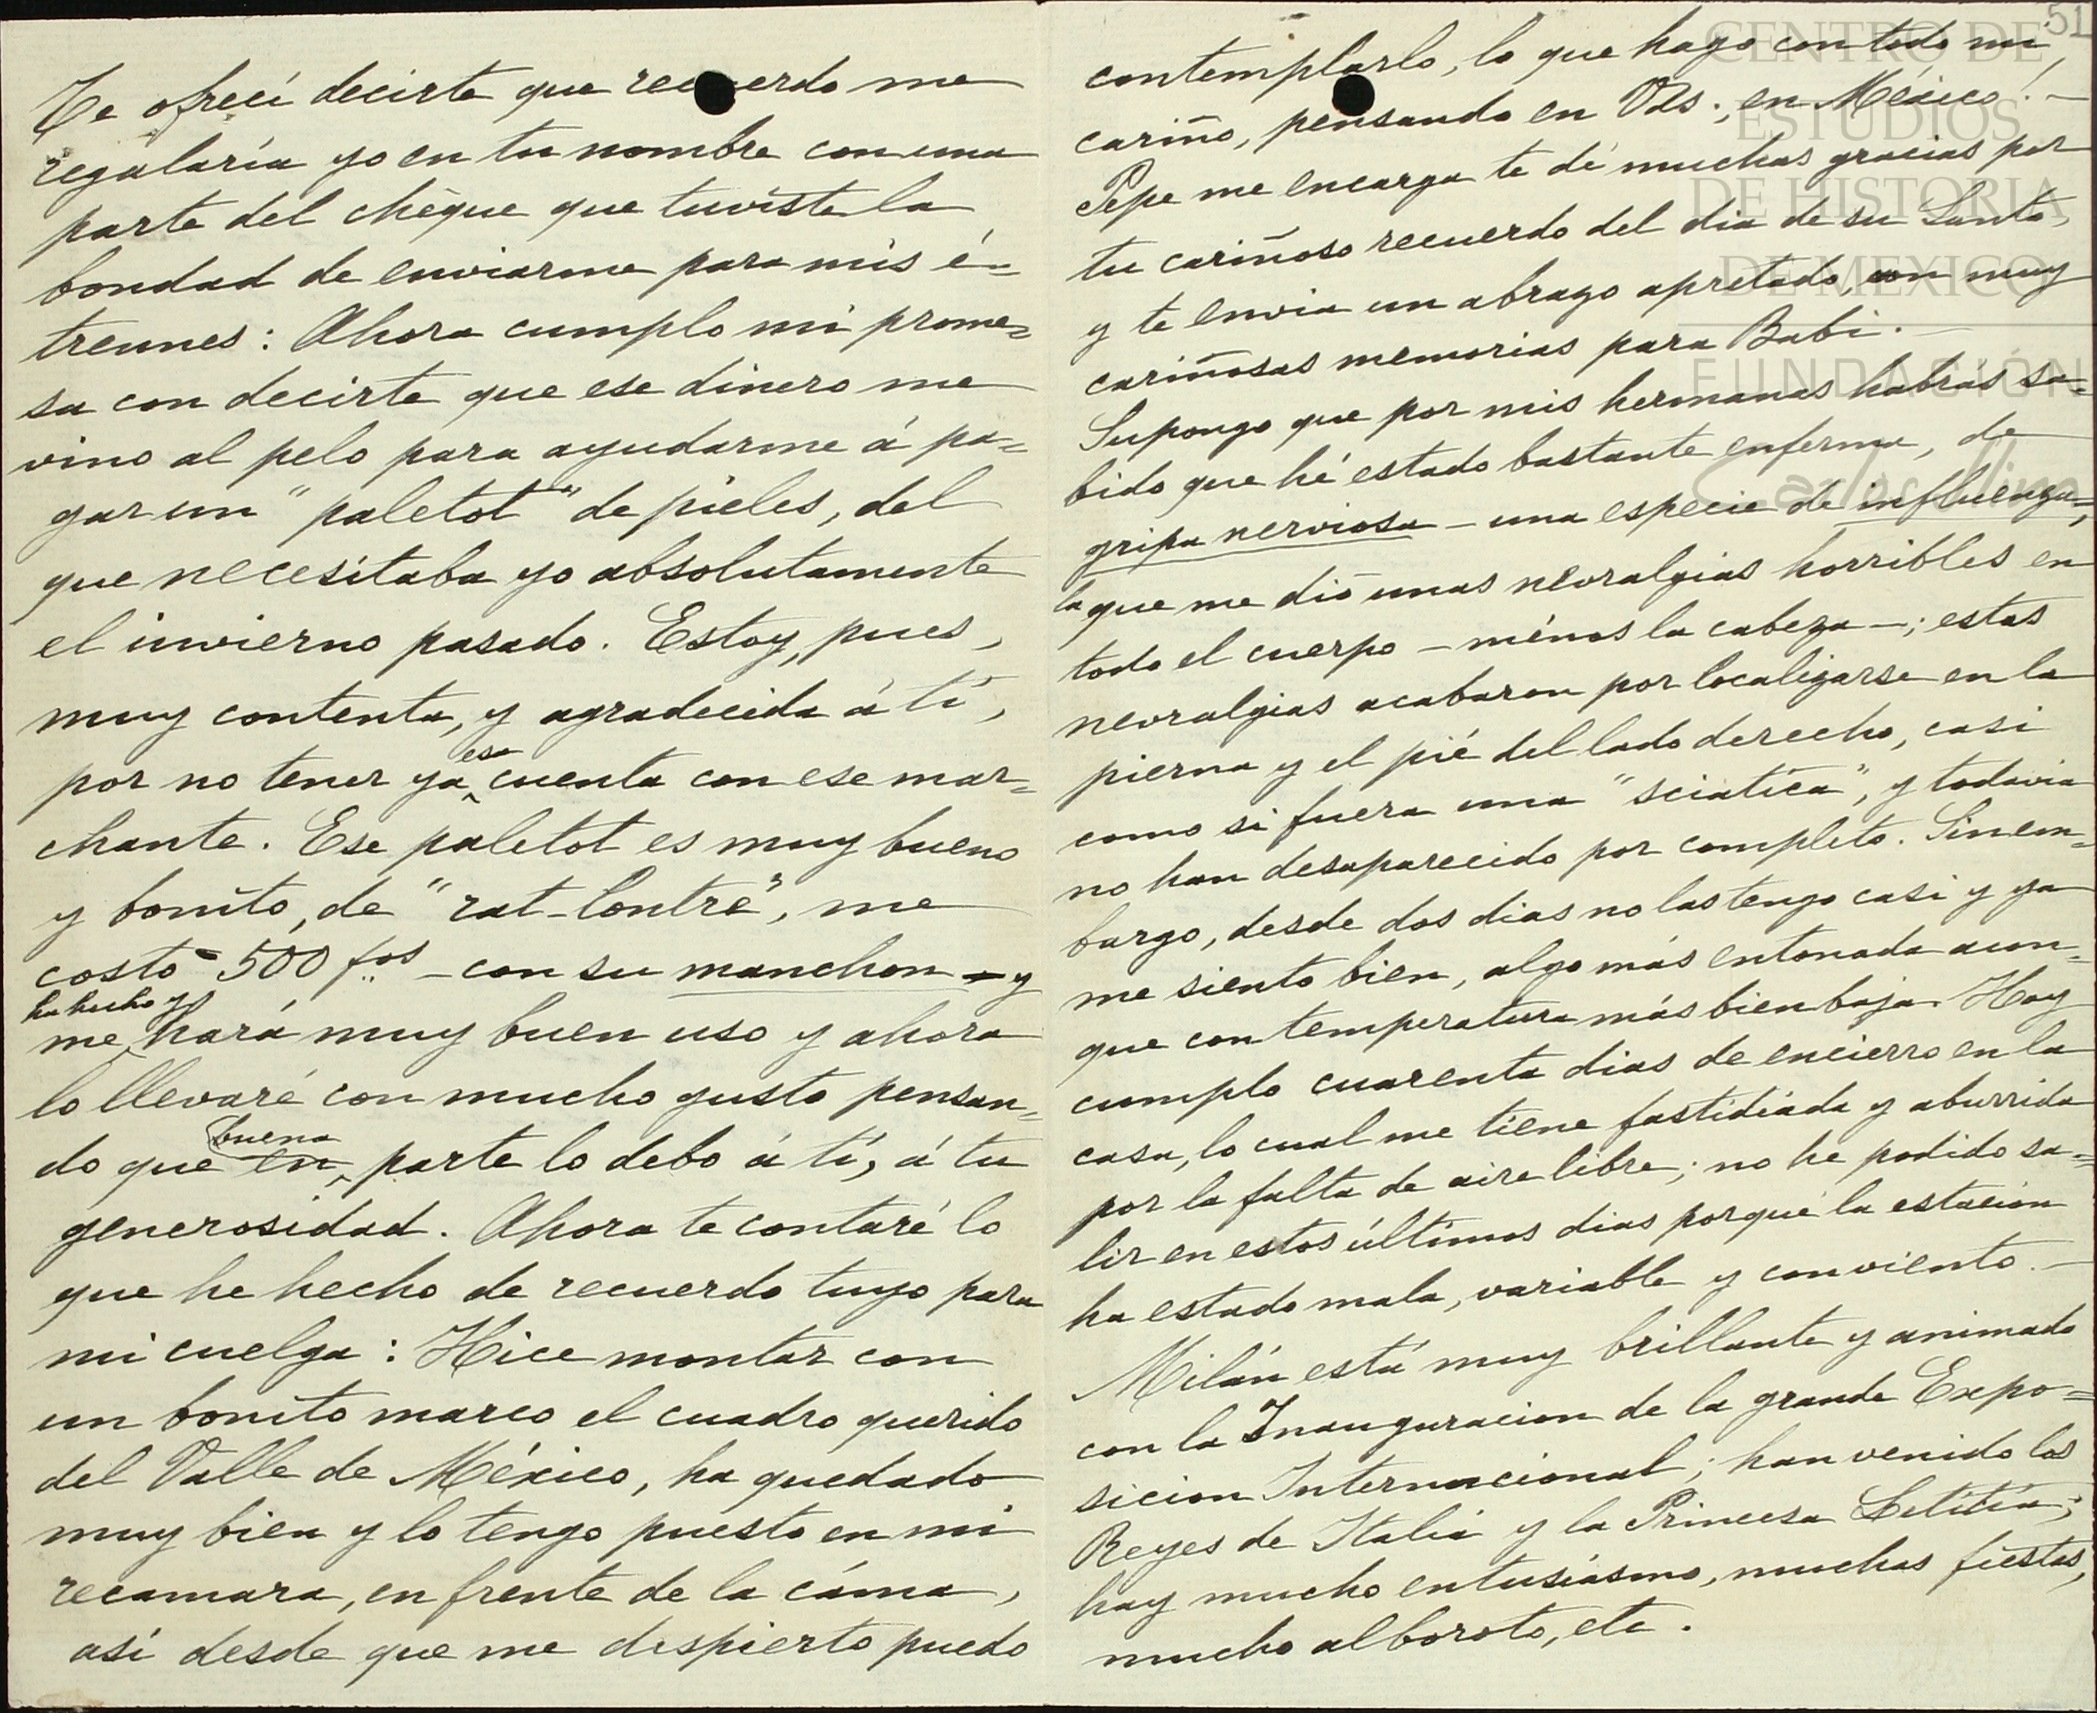 Te ofrecí decirte que recuerdo me
regalaría yo en tu nombre con una
parte del chèque que tuviste la
bondad de enviarme para mis é=
trennes: Ahora cumplo mi prome=
sa con decirte que ese dinero me
vino al pelo para ayudarme á pa=
gar un "paletot" de pieles, del
que necesitaba yo absolutamente
el invierno pasado. Estoy, pues,
muy contenta, y agradecida á tí,
por no tener ya esa cuenta con ese mar=
chante. Ese paletot es muy bueno
y bonito, de "rat-loutre", me
costó 500 fos - con su manchon - y
me ha hecho y hará muy buen uso y ahora
lo llevaré con mucho gusto pensan=
do que en buena parte lo debo á tí, á tu
generosidad. Ahora te contaré lo
que he hecho de recuerdo tuyo para
mi cuelga: Hice montar con
un bonito marco el cuadro querido
del Valle de México, ha quedado
muy bien y lo tengo puesto en mi
recamara, en frente de la cáma,
así desde que me despierto puedo
51
contemplarlo, lo que hago con todo mi
cariño, pensando en Vds., en México! -
Pepe me encarga te dé muchas gracias por
tu cariñoso recuerdo del dia de su Santo,
y te envia un abrazo apretado, con muy
cariñosas memorias para Babi. -
Supongo que por mis hermanas habras sa=
bido que hé estado bastante enferma, de
gripa nerviosa - una especie de influenza -,
la que me dió unas nevralgias horribles en
todo el cuerpo - ménos la cabeza -; estas
nevralgias acabaron por localizarse en la
pierna y el pié del lado derecho, casi
como si fuera una "sciatica", y todavia
no han desaparecido por completo. Sinem=
bargo, desde dos dias no las tengo casi y ya
me siento bien, algo más entonada aun=
que con temperatura más bien baja. Hoy
cumplo cuarenta dias de encierro en la
casa, lo cual me tiene fastidiada y aburrida
por la falta de aire libre; no he podido sa=
lir en estos últimos dias porqué la estacion
ha estado mala, variable y con viento. -
Milán está muy brillante y animado
con la Inauguracion de la grande Expo=
sicion Internacional; han venido los
Reyes de Italia y la Princesa Letitia;
hay mucho entusiasmo, muchas fiestas,
mucho alboroto, etc.
CENTRO DE
ESTUDIOS
DE HISTORIA
DE MEXICO
FUNDACIÓN
Carlos Slim